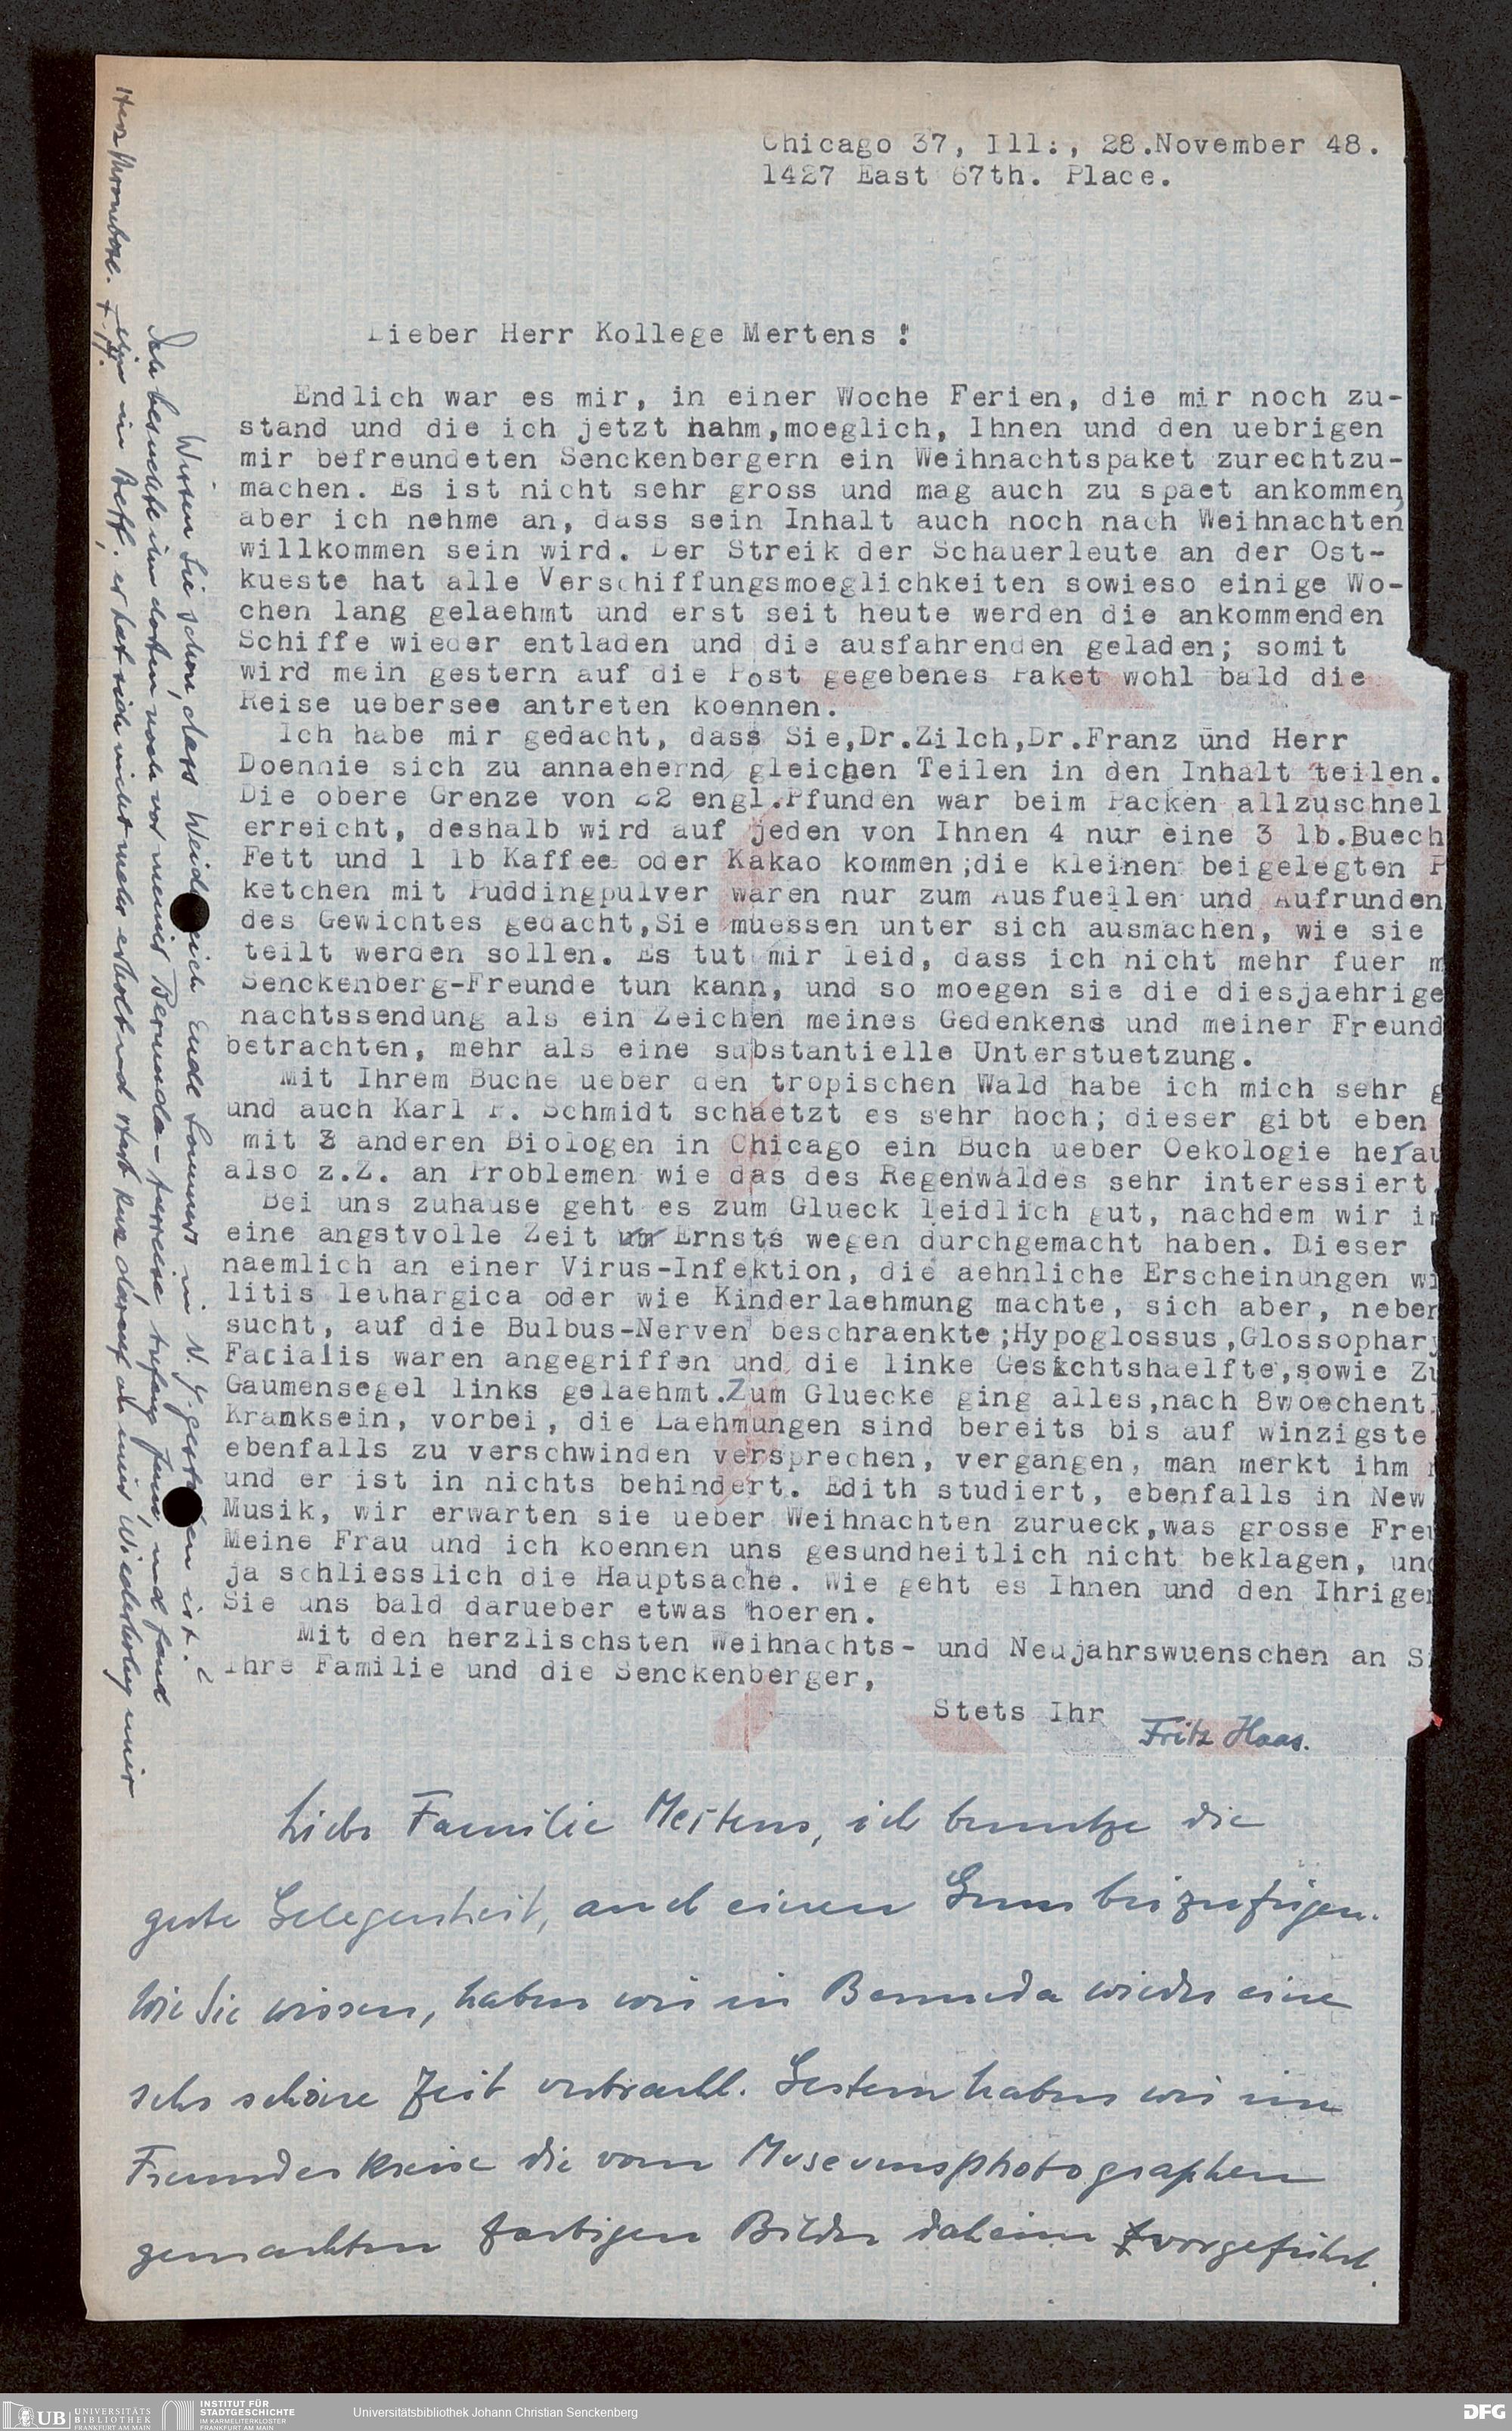 Chicago 37, Ill:, 28.November 48.
1427 East 67th. Place.
Lieber Herr Kollege Mertens !
Endlich war es mir, in einer Woche Ferien, die mir noch zu-
stand und die ich jetzt nahm,moeglich, Ihnen und den uebrigen
mir befreundeten Senckenbergern ein Weihnachtspaket zurechtzu-
machen. Es ist nicht sehr gross und mag auch zu spaet ankommen,
aber ich nehme an, dass sein Inhalt auch noch nach Weihnachten
willkommen sein wird. Der Streik der Schauerleute an der Ost-
kueste hat alle Verschiffungsmoeglichkeiten sowieso einige Wo-
chen lang gelaehmt und erst seit heute werden die ankommenden
Schiffe wieder entladen und die ausfahrenden geladen; somit
wird mein gestern auf die Post gegebenes Paket wohl bald die
Reise uebersee antreten koennen.
Ich habe mir gedacht, dass Sie,Dr.Zilch,Dr.Franz und Herr
Doennie sich zu annaehernd gleichen Teilen in den Inhalt teilen.
Die obere Grenze von 22 engl.Pfunden war beim Packen allzuschnel
erreicht, deshalb wird auf jeden von Ihnen 4 nur eine 3 lb.Buech
Fett und 1 lb Kaffee oder Kakao kommen;die kleinen beigelegten P
ketchen mit Puddingpulver waren nur zum Ausfuellen und Aufrunden
des Gewichtes gedacht,Sie muessen unter sich ausmachen, wie sie
teilt werden sollen. Es tut mir leid, dass ich nicht mehr fuer m
Senckenberg-Freunde tun kann, und so moegen sie die diesjaehrige
nachtssendung als ein Zeichen meines Gedenkens und meiner Freund
betrachten, mehr als eine substantielle Unterstuetzung.
Mit Ihrem Buche ueber den tropischen Wald habe ich mich sehr g
und auch Karl P. Schmidt schaetzt es sehr hoch; dieser gibt eben
mit 3 anderen Biologen in Chicago ein Buch ueber Oekologie herau
also z.Z. an Problemen wie das des Regenwaldes sehr interessiert.
Bei uns zuhause geht es zum Glueck leidlich gut, nachdem wir in
eine angstvolle Zeit Ernsts wegen durchgemacht haben. Dieser
naemlich an einer Virus-Infektion, die aehnliche Erscheinungen wi
litis lethargica oder wie Kinderlaehmung machte, sich aber, neben
sucht, auf die Bulbus-Nerven beschraenkte;Hypoglossus,Glossophary
Facialis waren angegriffen und die linke Gesichtshaelfte,sowie Zu
Gaumensegel links gelaehmt.Zum Gluecke ging alles,nach 8woechentl
Kranksein, vorbei, die Laehmungen sind bereits bis auf winzigste
ebenfalls zu verschwinden versprechen, vergangen, man merkt ihm
und er ist in nichts behindert. Edith studiert, ebenfalls in New
Musik, wir erwarten sie ueber Weihnachten zurueck,was grosse Freu
Meine Frau und ich koennen uns gesundheitlich nicht beklagen, und
ja schliesslich die Hauptsache. Wie geht es Ihnen und den Ihrigen
Sie uns bald darueber etwas hoeren.
Mit den herzlischsten Weihnachts- und Neujahrswuenschen an S
Ihre Familie und die Senckenberger,
Stets Ihr
Fritz Haas.
Liebe Familie Mertens, ich benutze die
gute Gelegenheit, auch einen Gruss beizufügen.
Wie Sie wissen, haben wir in Bermuda wieder eine
sehr schöne Zeit verbracht. Gestern haben wir im
Freundeskreise die vom Museumsphotographen
gemachten farbigen Bilder daheim vorgeführt.
Wissen Sie schon, dass Weid eich Ende Sommer in N.Y. gestorben ist?
Ich besuchte ihn dorten noch vor meiner Bermuda-reise, anfang Juni, und fand
ihn im Bett; er hat sich nicht mehr erholt und starb kurz darauf an einer Wiederholung einer
Herzthrombose.
UB UNIVERSITÄTS BIBLIOTHEK FRANKFURT AM MAIN
INSTITUT FÜR STADTGESCHICHTE IM KARMELITERKLOSTER FRANKFURT AM MAIN
Universitätsbibliothek Johann Christian Senckenberg
DFG